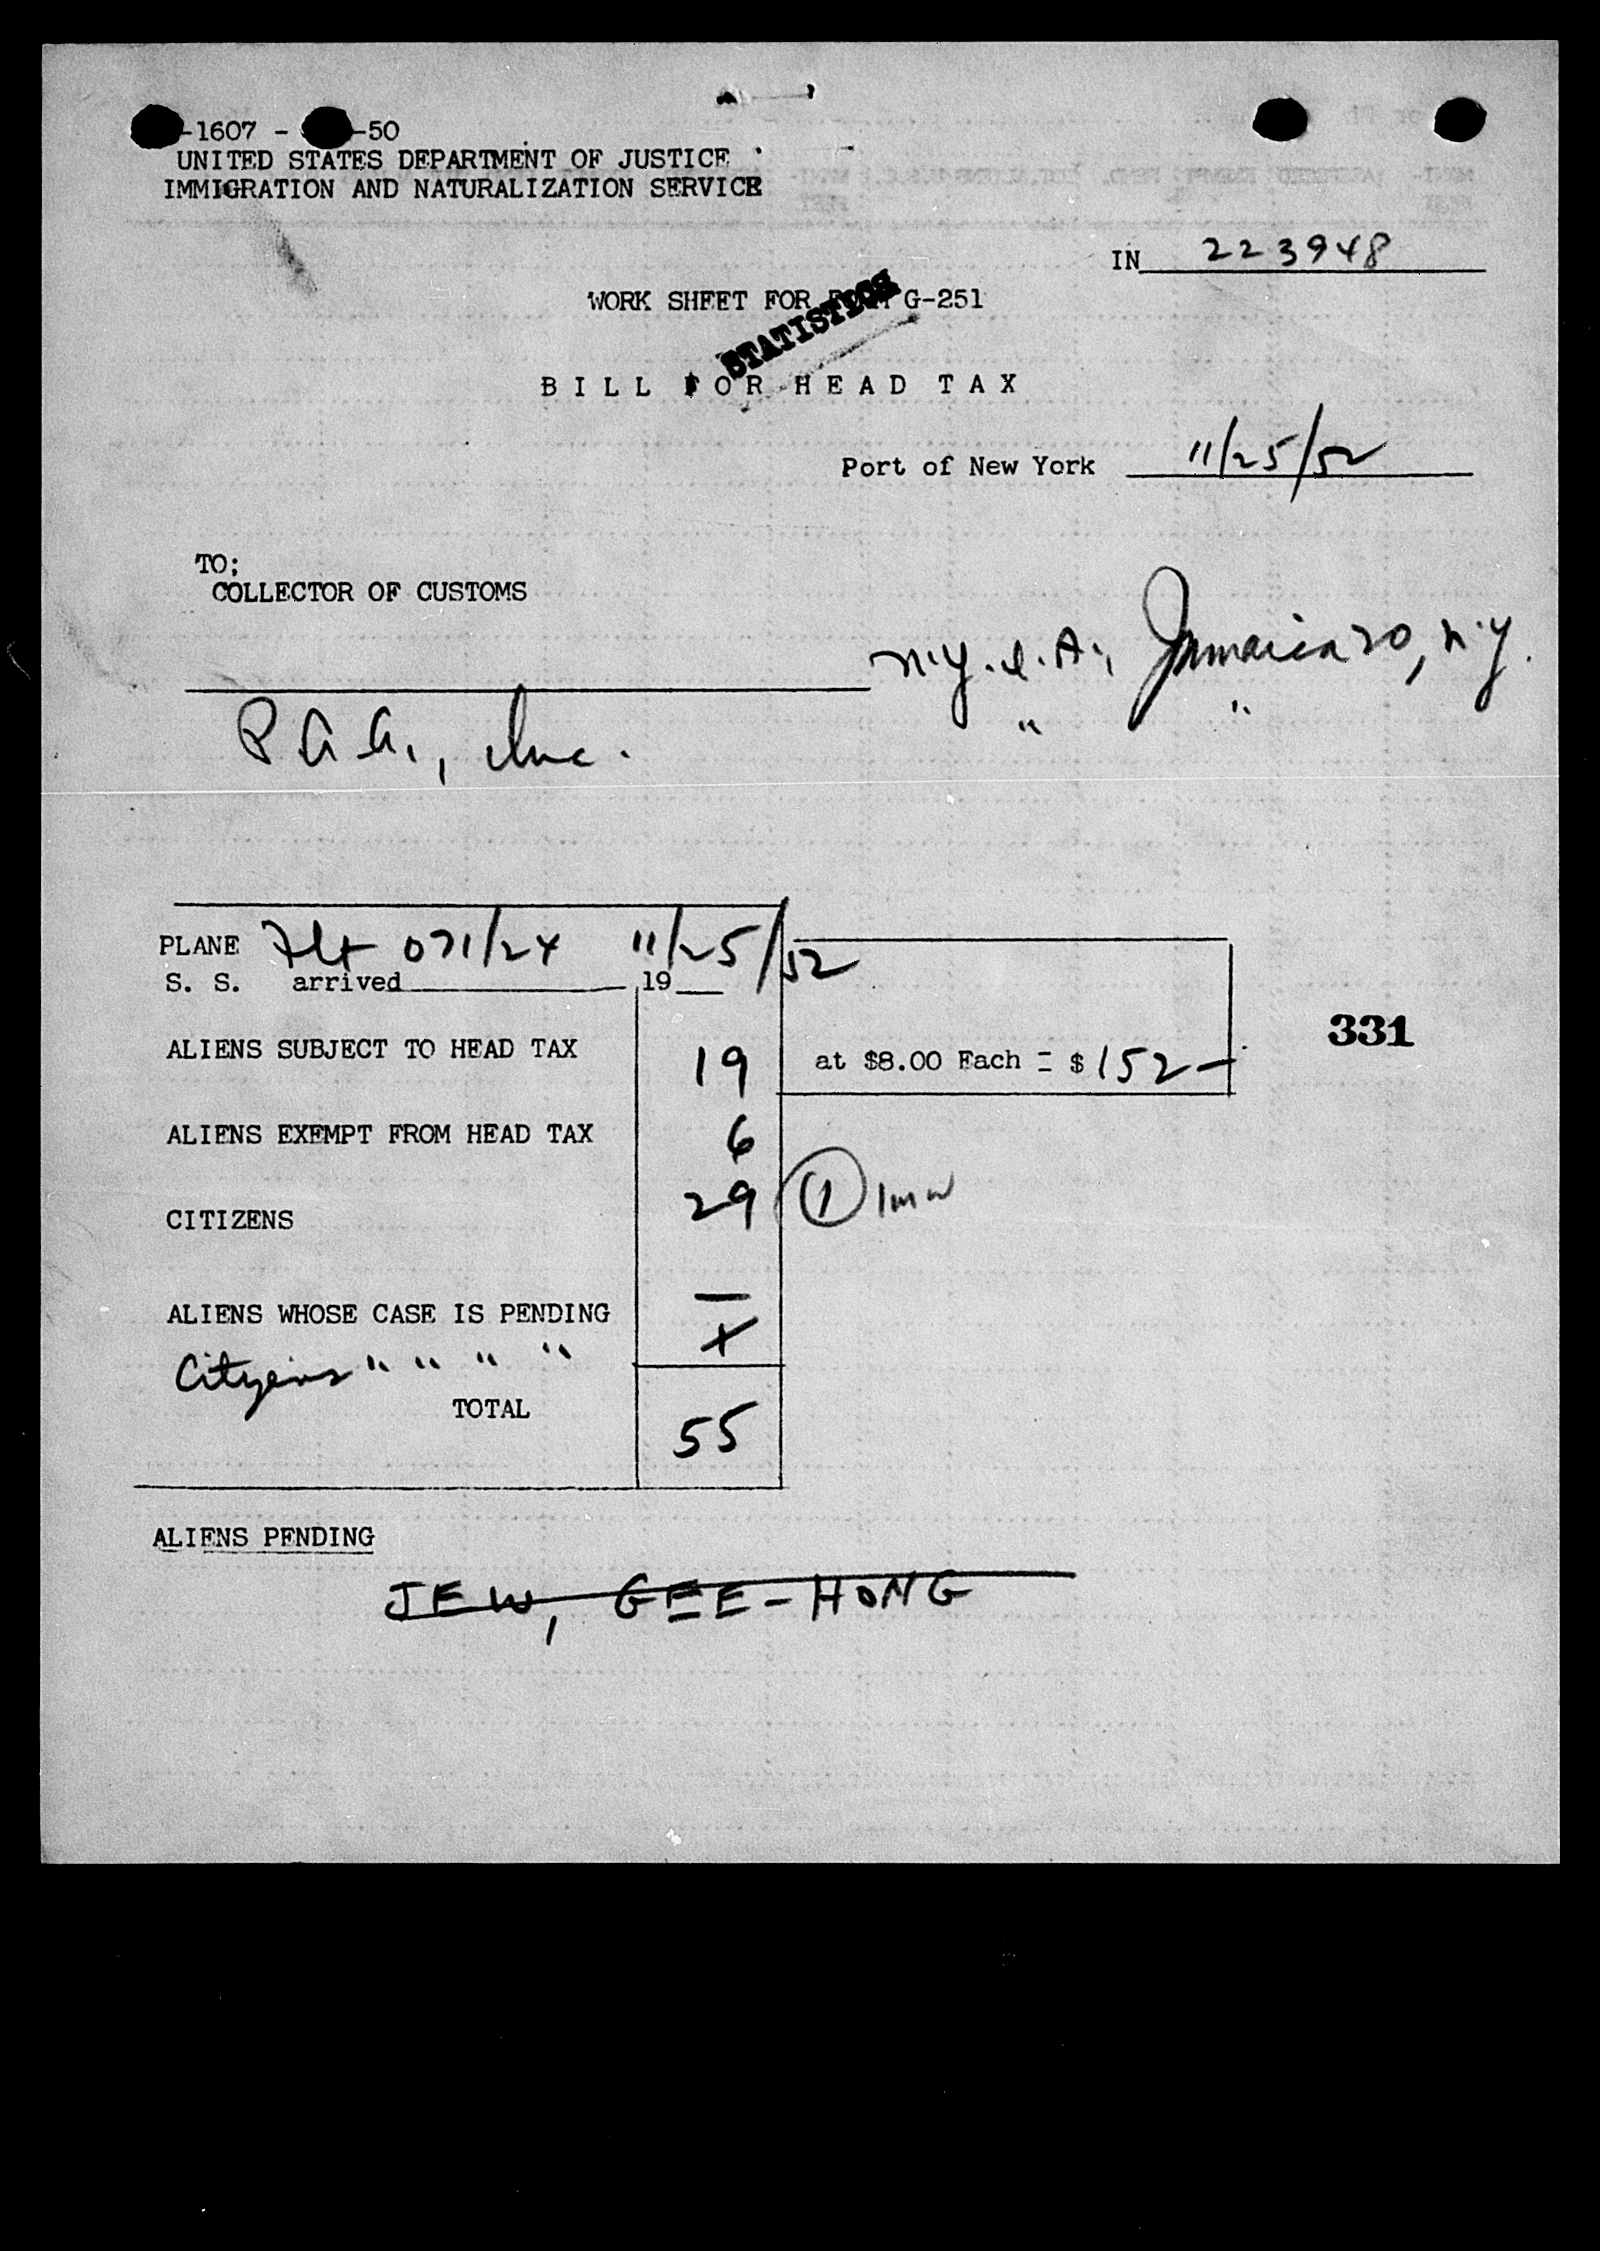 -1607 - -50
UNITED STATES DEPARTMENT OF JUSTICE
IMMIGRATION AND NATURALIZATION SERVICE
IN 223948
WORK SHEET FOR FORM G-251
STATISTICS
BILL FOR HEAD TAX
Port of New York 11/25/52
TO;
COLLECTOR OF CUSTOMS
N.Y.I.A., Jamaica 30, N.Y.
" "
P.A.A., Inc.
PLANE Flt 071/24 11/25/52
S. S. arrived 19
331
ALIENS SUBJECT TO HEAD TAX 19 at $8.00 Each = $152-
ALIENS EXEMPT FROM HEAD TAX 6
CITIZENS 29 (1)
ALIENS WHOSE CASE IS PENDING —
Citizens " " " "
TOTAL 55
ALIENS PENDING
JEW, GEE-HONG